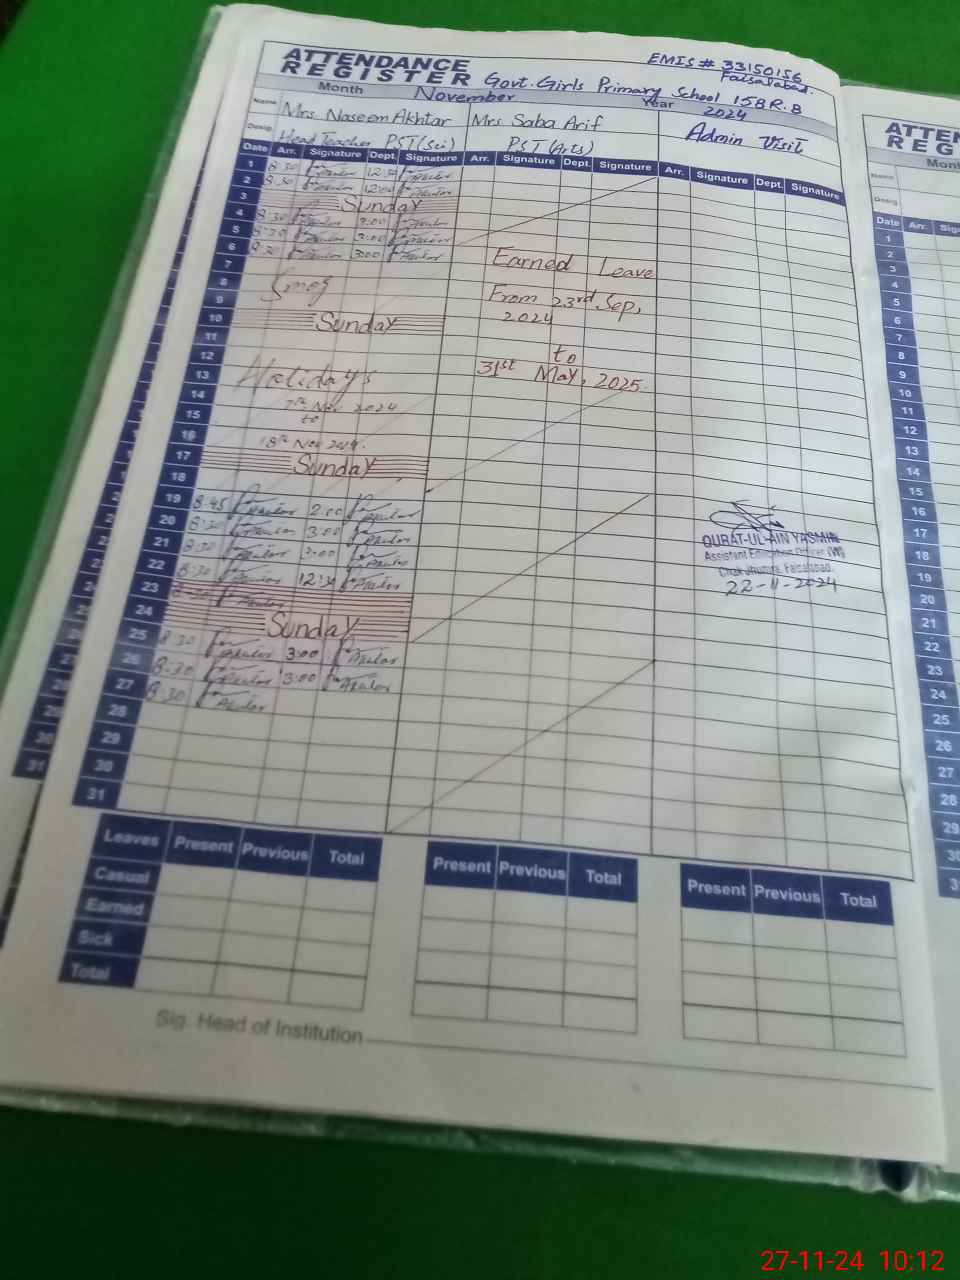 EMIS # 33150156
ATTENDANCE
REGISTER
Govt. Girls Primary School 158 R.B
Faisalabad.
Month November Year 2024
Name Mrs Naseem Akhtar Mrs Saba Arif
Admin Visit
Desig. Head Teacher PST (Sci) PST (Arts)
Date Arr. Signature Dept. Signature Arr. Signature Dept. Signature Arr. Signature Dept. Signature
1 8:30 12:30
2 8:30 12:00
3 Sunday
4 8:30 3:00
5 8:30 3:00
6 8:30 3:00
7 Earned Leave
8 Smog
9 From 23rd Sep,
10 Sunday 2024
11
12 to
13 Holidays 31st May, 2025.
14 7th Nov 2024
15 to
16 18th Nov 2024.
17 Sunday
18
19 8:45 2:00
20 8:30 3:00
21 8:30 3:00
22 8:30 12:30
23
24 Sunday
25 8:30 3:00
26 8:30 3:00
27 8:30
28
29
30
31
QURAT-UL-AIN YASMIN
Assistant Education Officer (W)
Chak Jhumra, Faisalabad.
22-11-2024
Leaves Present Previous Total Present Previous Total Present Previous Total
Casual
Earned
Sick
Total
Sig. Head of Institution
ATTEN
REG
Mont
Name
Desig.
Date Arr. Sign
1
2
3
4
5
6
7
8
9
10
11
12
13
14
15
16
17
18
19
20
21
22
23
24
25
26
27
28
29
30
27-11-24 10:12